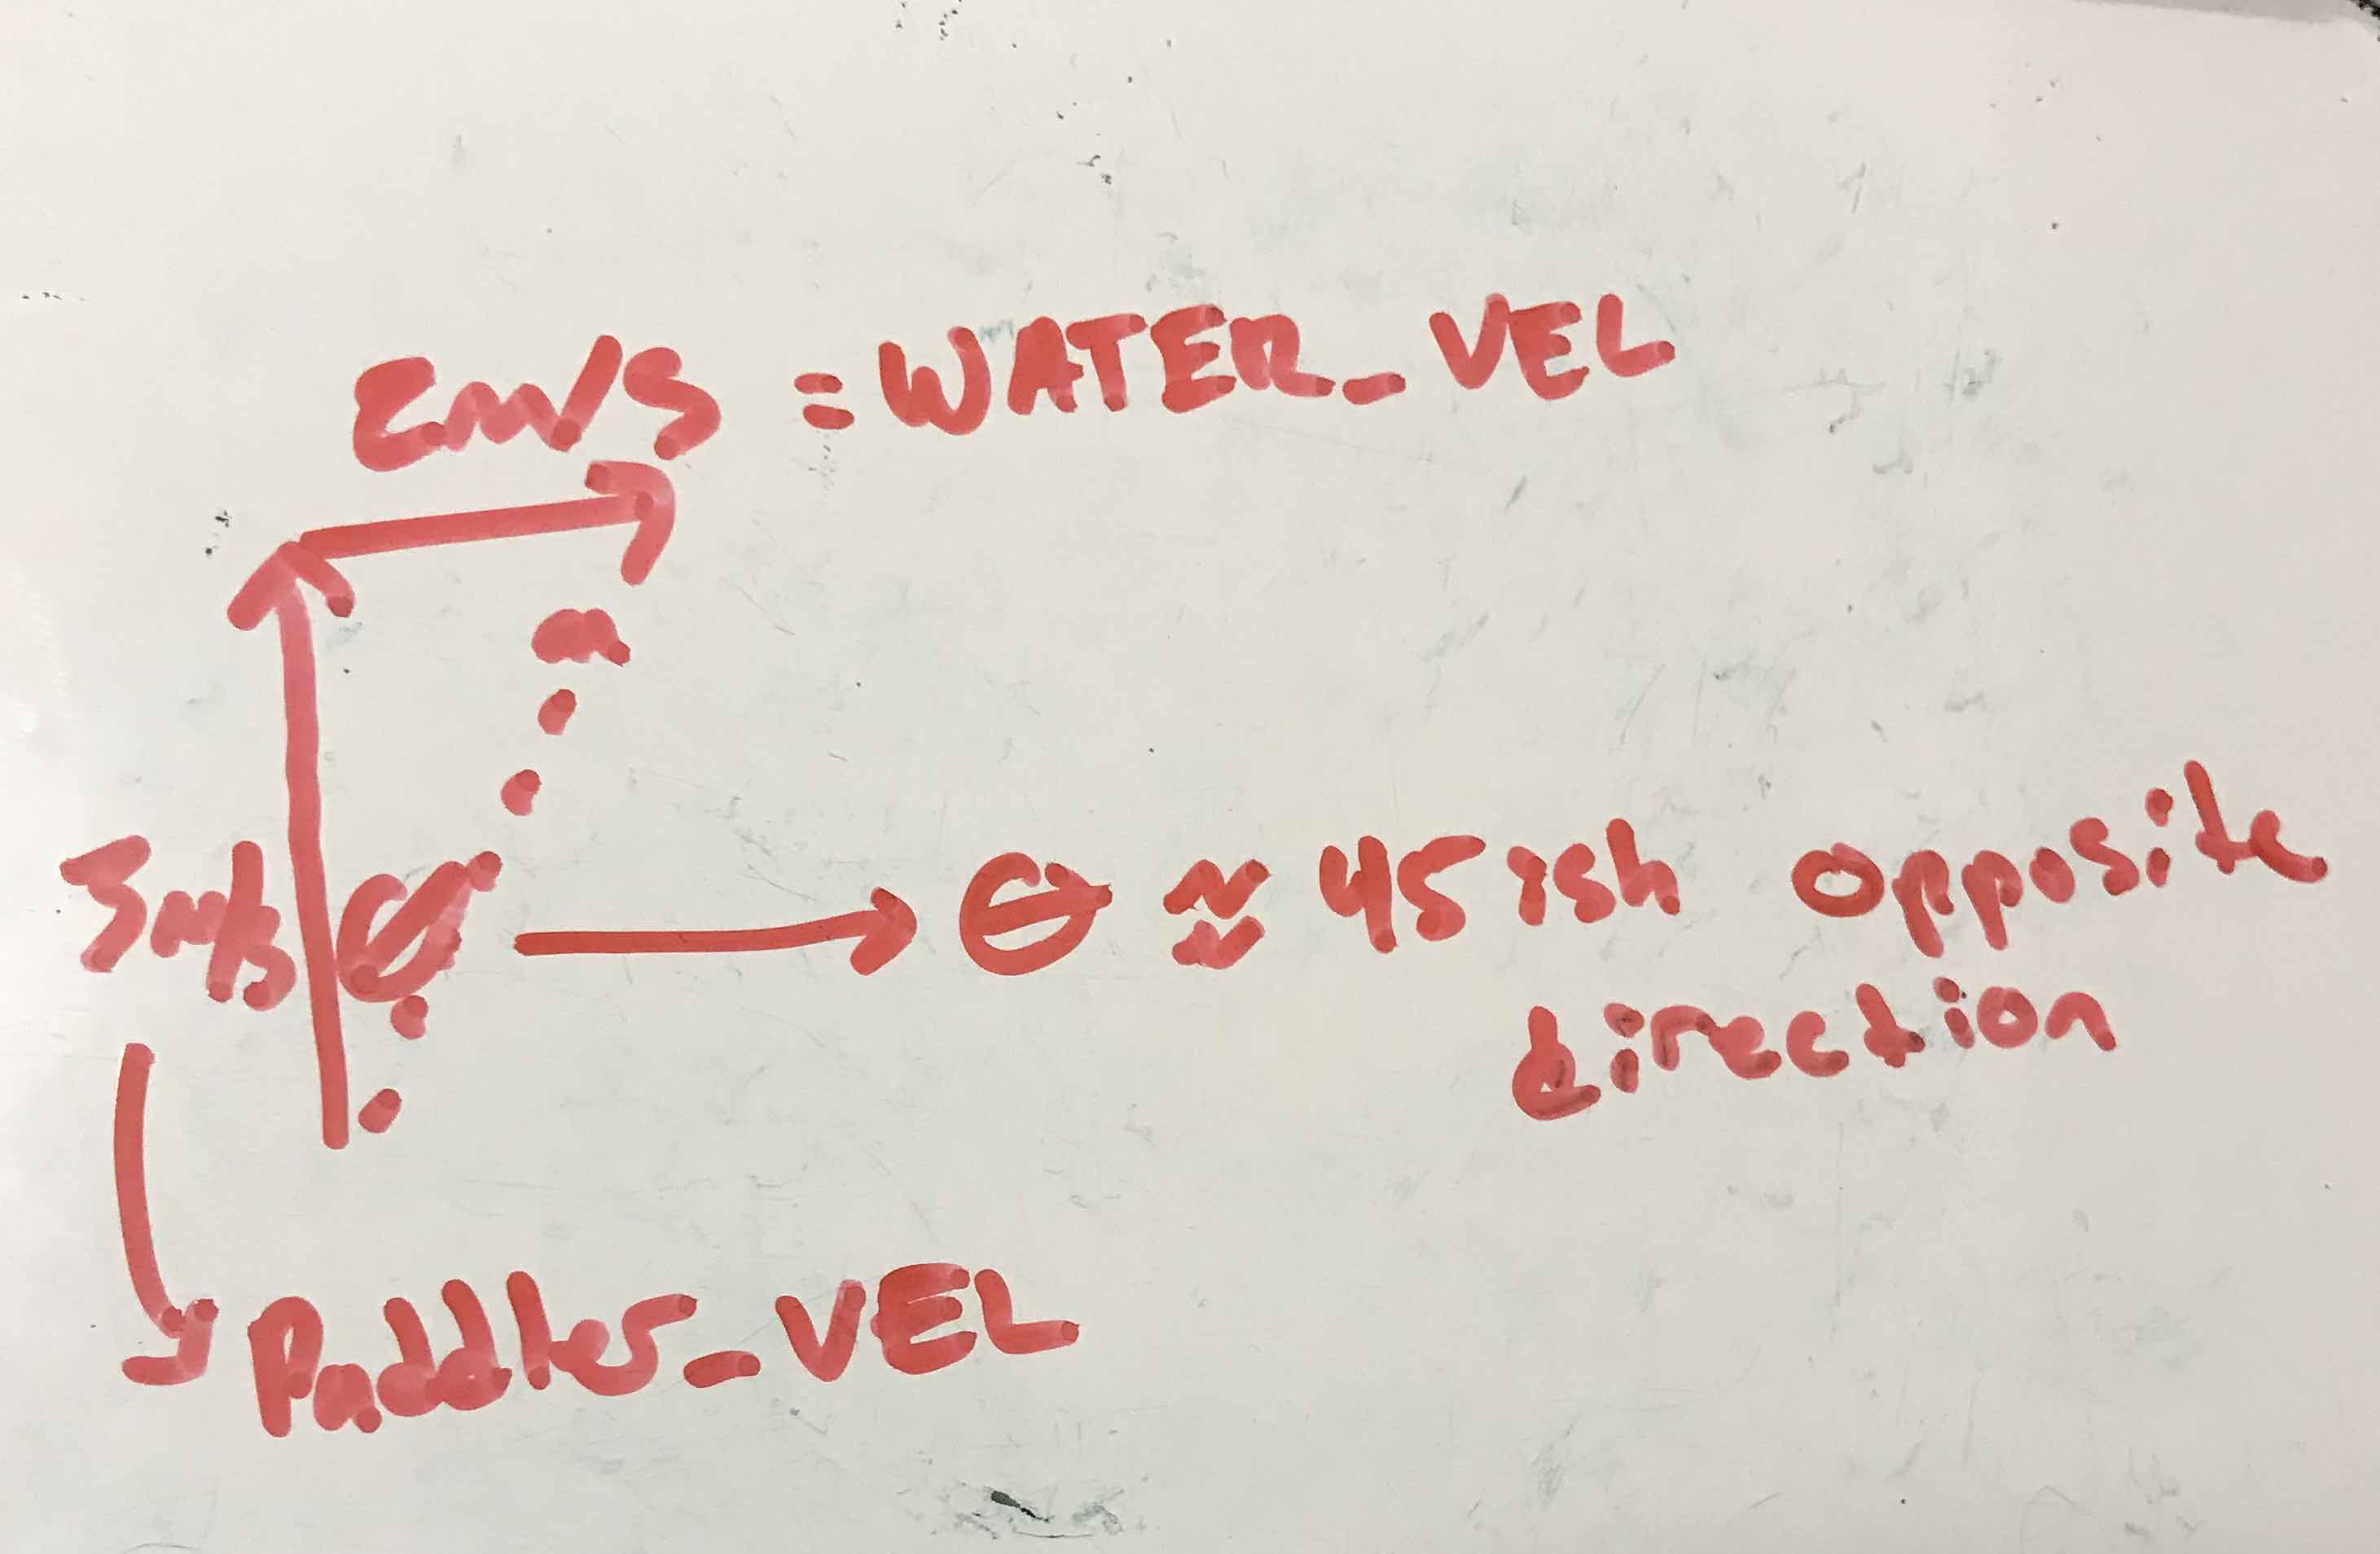 2m/s = WATER_VEL
3m/s
θ → θ ≈ 45 ish opposite
direction
Paddler_VEL